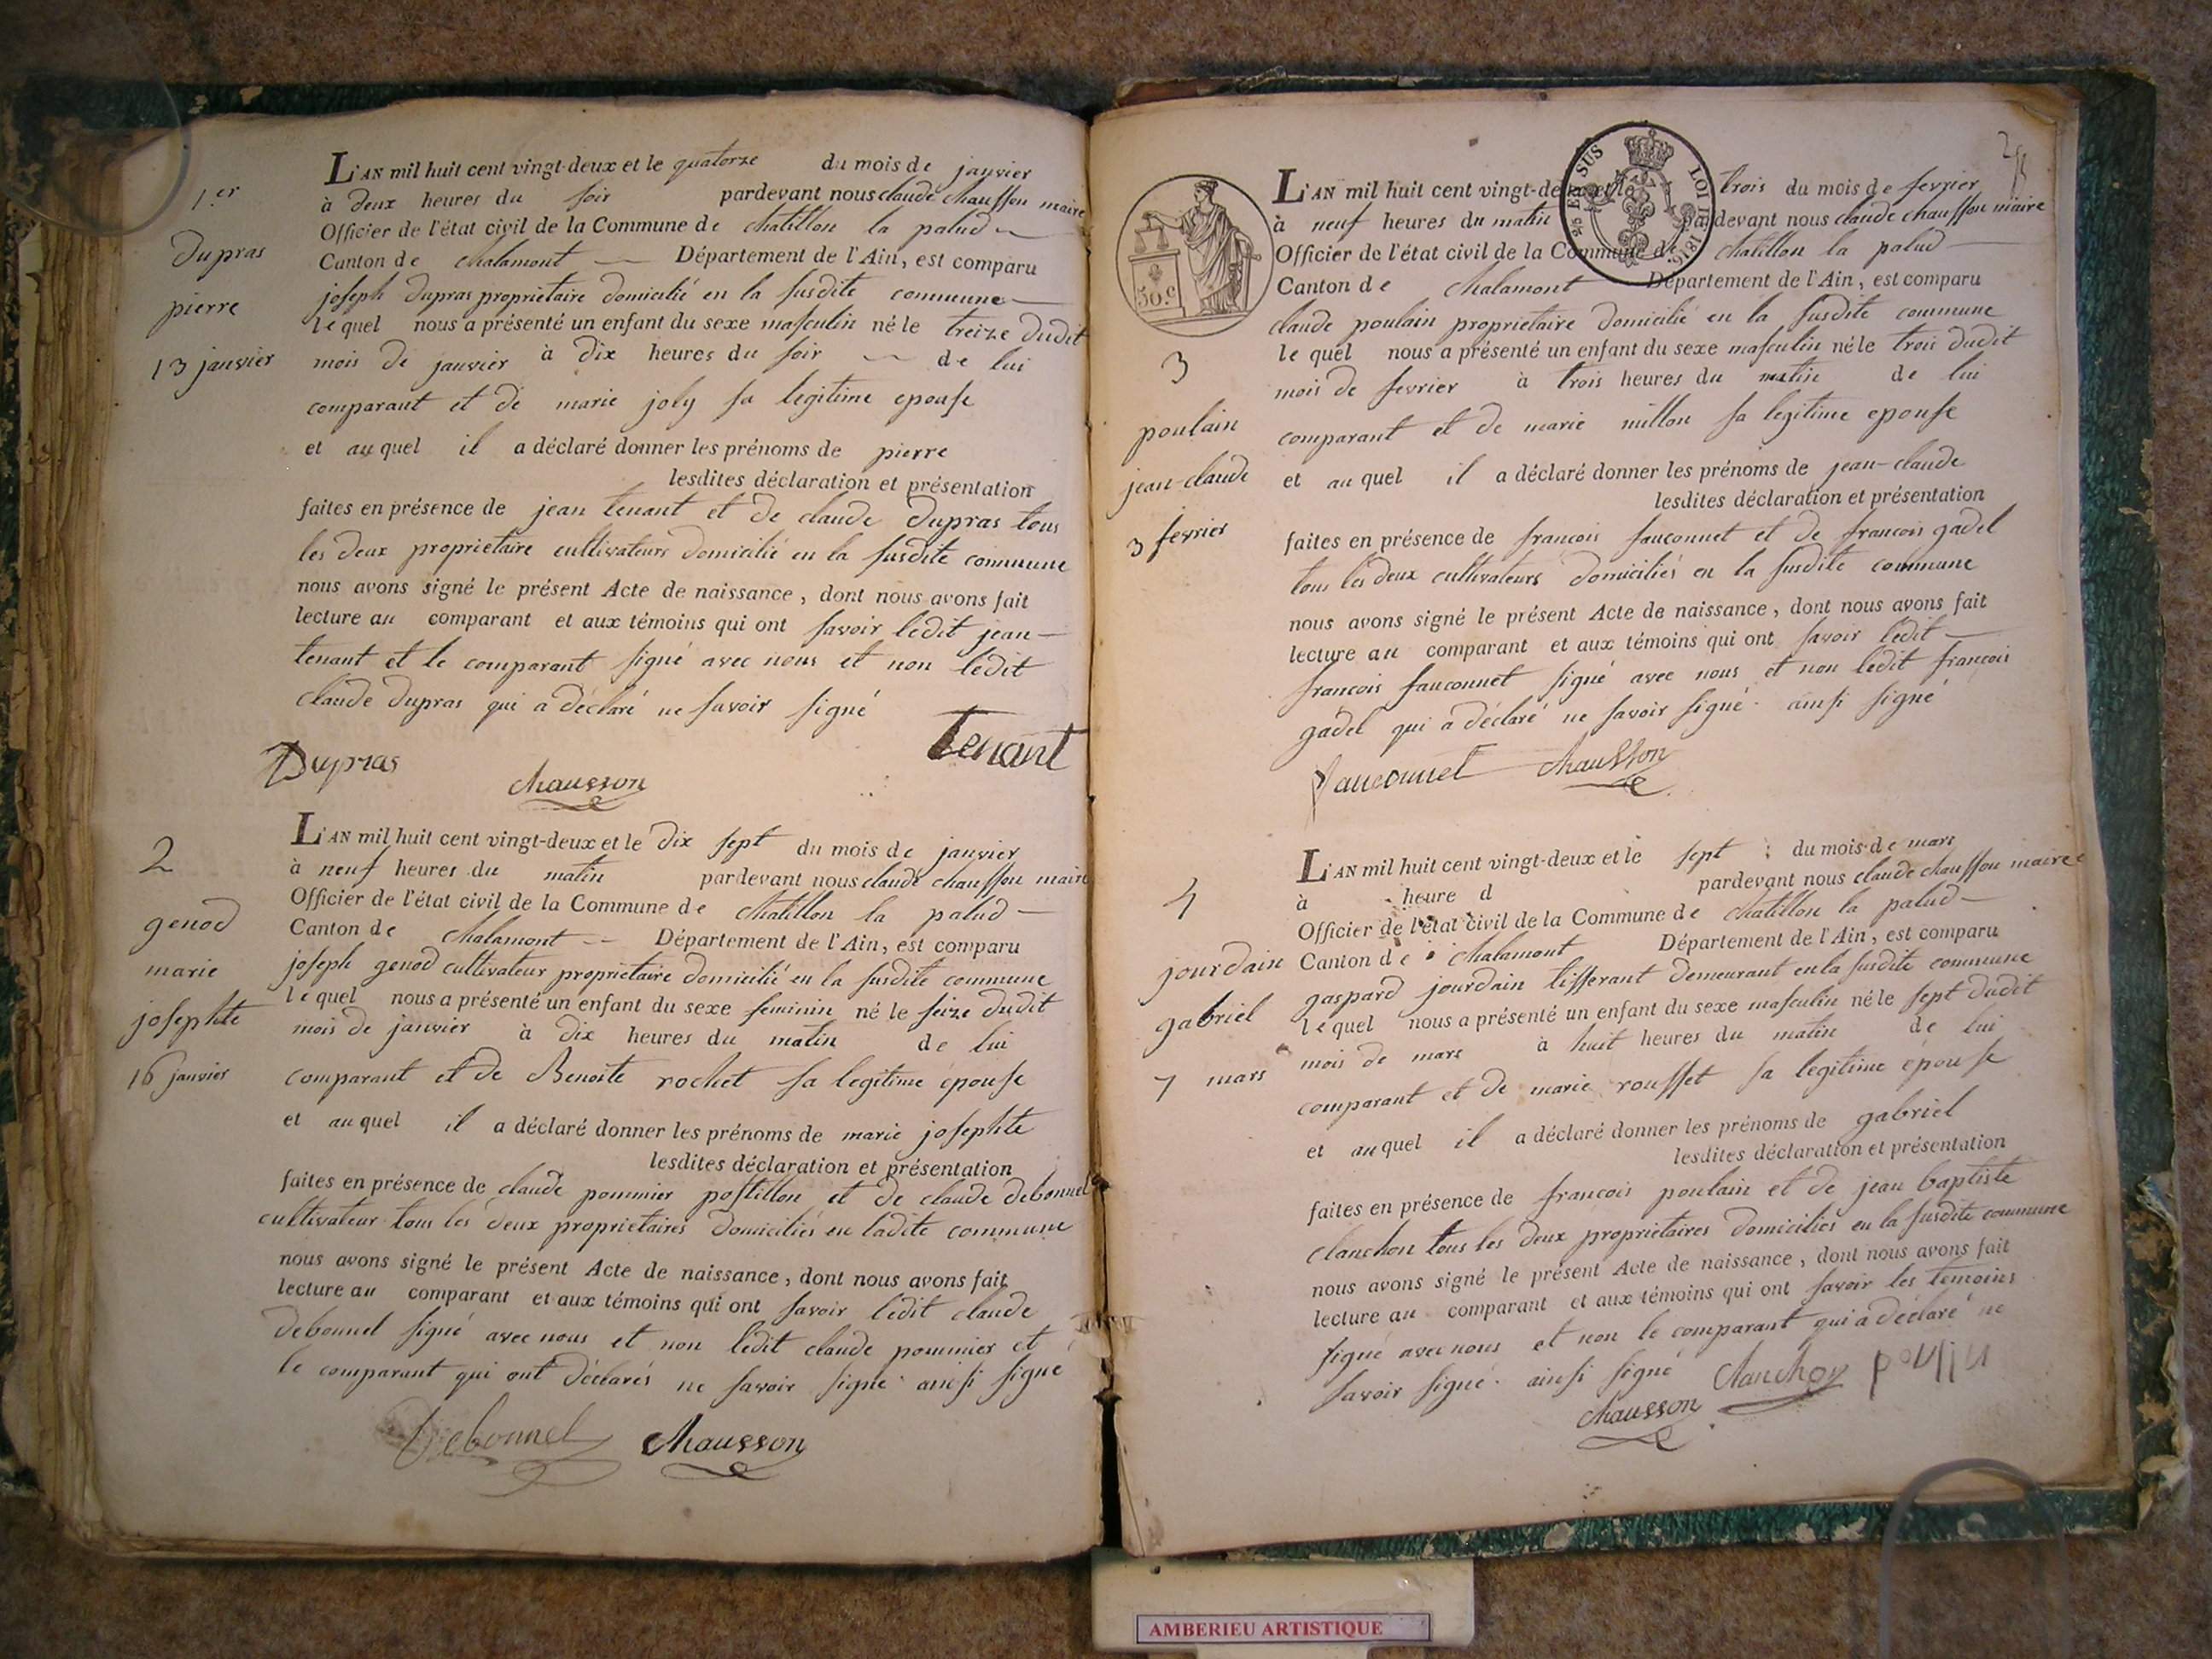 1.er
dupras
pierre
13 janvier
L'AN mil huit cent vingt-deux et le quatorze du mois de janvier
à deux heures du soir pardevant nous claude chausson maire
Officier de l'état civil de la Commune de chatillon la palud
Canton de chalamont Département de l'Ain, est comparu
joseph dupras proprietaire domicilié en la susdite commune
lequel nous a présenté un enfant du sexe masculin né le treize dudit
mois de janvier à dix heures du soir de lui
comparant et de marie joly sa legitime epouse
et auquel il a déclaré donner les prénoms de pierre
lesdites déclaration et présentation
faites en présence de jean tenant et de claude dupras tous
les deux proprietaire cultivateurs domicilié en la susdite commune
nous avons signé le présent Acte de naissance, dont nous avons fait
lecture au comparant et aux témoins qui ont savoir ledit jean
tenant et le comparant signé avec nous et non ledit
claude dupras qui a déclaré ne savoir signé
Dupras chausson Tenant
2
genod
marie
josephte
16 janvier
L'AN mil huit cent vingt-deux et le dix sept du mois de janvier
à neuf heures du matin pardevant nous claude chausson maire
Officier de l'état civil de la Commune de chatillon la palud
Canton de chalamont Département de l'Ain, est comparu
joseph genod cultivateur proprietaire domicilié en la susdite commune
lequel nous a présenté un enfant du sexe feminin né le seize dudit
mois de janvier à dix heures du matin de lui
comparant et de Benoite rochet sa legitime épouse
et auquel il a déclaré donner les prénoms de marie josephte
lesdites déclaration et présentation
faites en présence de claude pommier postillon et de claude debonnel
cultivateur tous les deux proprietaires domiciliés en ladite commune
nous avons signé le présent Acte de naissance, dont nous avons fait
lecture au comparant et aux témoins qui ont savoir ledit claude
debonnel signé avec nous et non ledit claude pommier et
le comparant qui ont déclarés ne savoir signé ainsi signé
Debonnel chausson
EN SUS
LOI DE 1816
50.c
3
poulain
jean-claude
3 fevrier
L'AN mil huit cent vingt-deux et le trois du mois de fevrier
à neuf heures du matin pardevant nous claude chausson maire
Officier de l'état civil de la Commune de chatillon la palud
Canton de chalamont Département de l'Ain, est comparu
claude poulain proprietaire domicilié en la susdite commune
lequel nous a présenté un enfant du sexe masculin né le trois dudit
mois de fevrier à trois heures du matin de lui
comparant et de marie millon sa legitime epouse
et auquel il a déclaré donner les prénoms de jean-claude
lesdites déclaration et présentation
faites en présence de francois fauconnet et de francois gadel
tous les deux cultivateurs domiciliés en la susdite commune
nous avons signé le présent Acte de naissance, dont nous avons fait
lecture au comparant et aux témoins qui ont savoir ledit
francois fauconnet signé avec nous et non ledit françois
gadel qui a déclaré ne savoir signé. ainsi signé
fauconnet chausson
4
jourdain
gabriel
7 mars
L'AN mil huit cent vingt-deux et le sept du mois de mars
à heure d pardevant nous claude chausson maire
Officier de l'état civil de la Commune de chatillon la palud
Canton de chalamont Département de l'Ain, est comparu
gaspard jourdain tisserant demeurant en la susdite commune
lequel nous a présenté un enfant du sexe masculin né le sept dudit
mois de mars à huit heures du matin de lui
comparant et de marie rousset sa legitime épouse
et auquel il a déclaré donner les prénoms de gabriel
lesdites déclaration et présentation
faites en présence de francois poulain et de jean baptiste
clanchon tous les deux proprietaires domiciliés en la susdite commune
nous avons signé le présent Acte de naissance, dont nous avons fait
lecture au comparant et aux témoins qui ont savoir les temoins
signé avec nous et non le comparant qui a déclaré ne
savoir signé. ainsi signé clanchon
chausson
AMBERIEU ARTISTIQUE